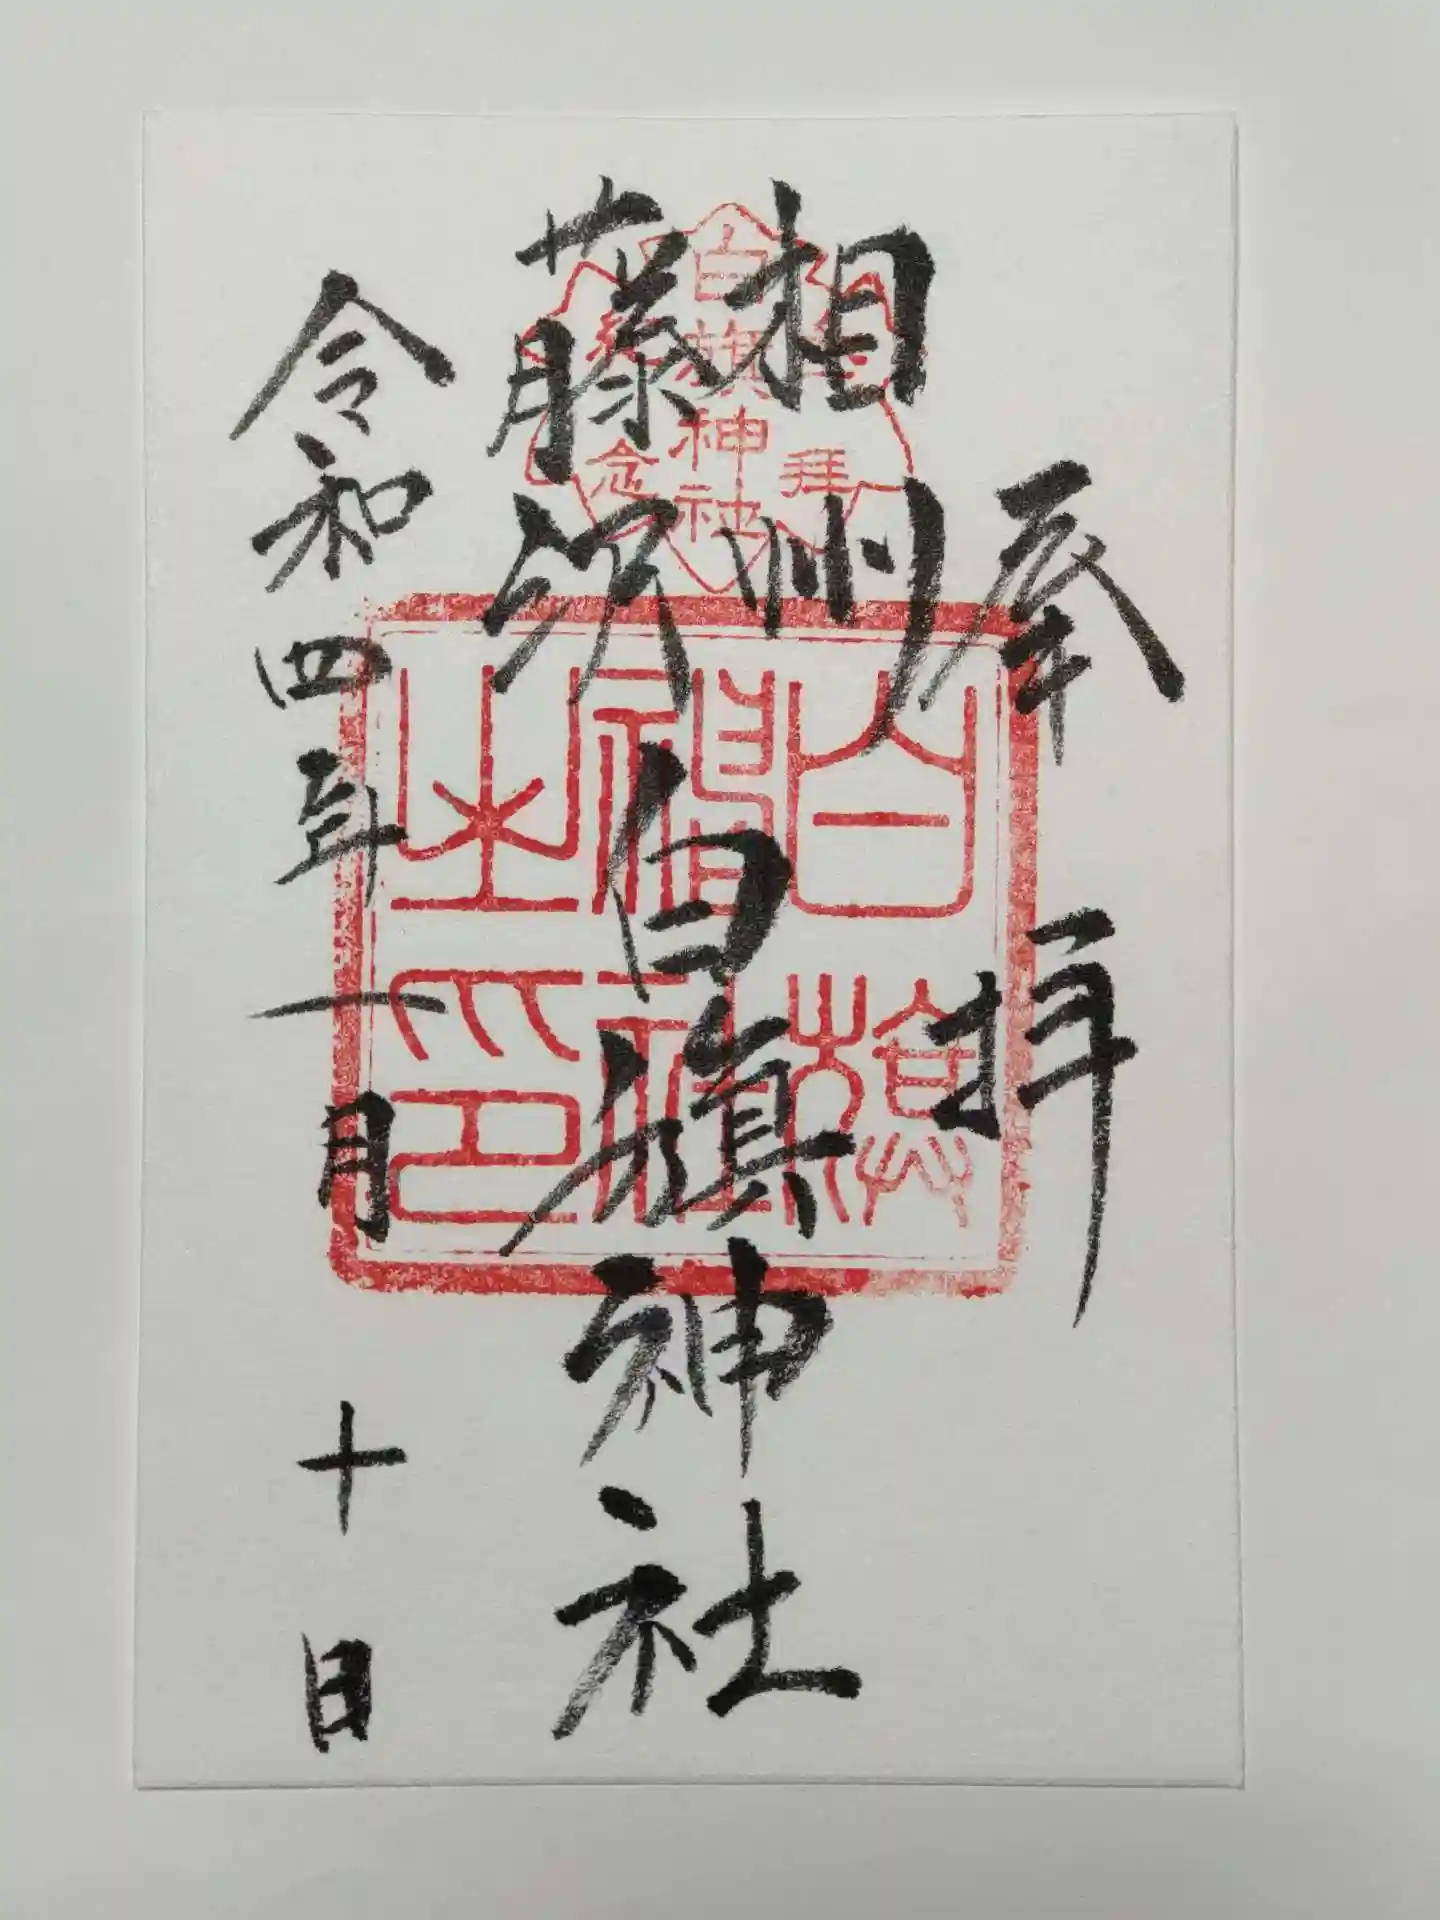 奉拝
相州
藤沢
白旗神社
令和四年一月十日
白旗神社
参拝
記念
白旗神社之印